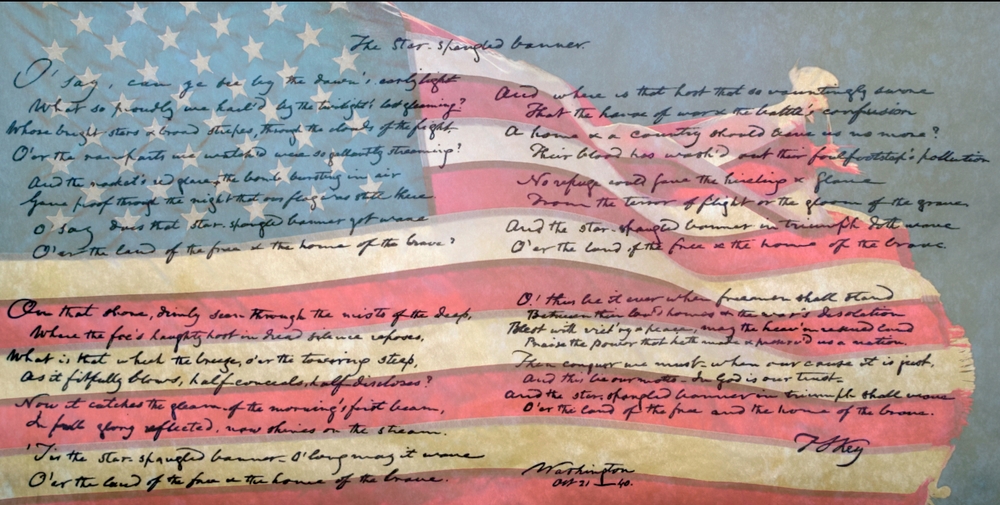 The Star-spangled banner.
O! say, can ye see by the dawn's early light
What so proudly we hail'd by the twilight's last gleaming?
Whose bright stars & broad stripes, through the clouds of the fight
O'er the ramparts we watch'd were so gallantly streaming?
And the rocket's red glare, the bomb bursting in air
Gave proof through the night that our flag was still there
O! say does that star-spangled banner yet wave
O'er the land of the free & the home of the brave?
On that shore, dimly seen through the mists of the deep,
Where the foe's haughty host in dread silence reposes,
What is that which the breeze, o'er the towering steep,
As it fitfully blows, half conceals, half discloses?
Now it catches the gleam of the morning's first beam,
In full glory reflected, now shines on the stream.
'Tis the star-spangled banner - O! long may it wave
O'er the land of the free & the home of the brave.
And where is that host that so vauntingly swore
That the havoc of war & the battle's confusion
A home & a country should leave us no more?
Their blood has wash'd out their foul footstep's pollution
No refuge could save the hireling & slave
From the terror of flight or the gloom of the grave,
And the star-spangled banner in triumph doth wave
O'er the land of the free & the home of the brave.
O! thus be it ever when freemen shall stand
Between their lov'd homes & the war's desolation
Blest with vict'ry & peace, may the heav'n rescued land
Praise the power that hath made & preserv'd us a nation.
Then conquer we must - when our cause it is just,
And this be our motto - In God is our trust -
And the star-spangled banner in triumph shall wave
O'er the land of the free and the home of the brave.
F S Key
Washington
Oct 21 - 40.